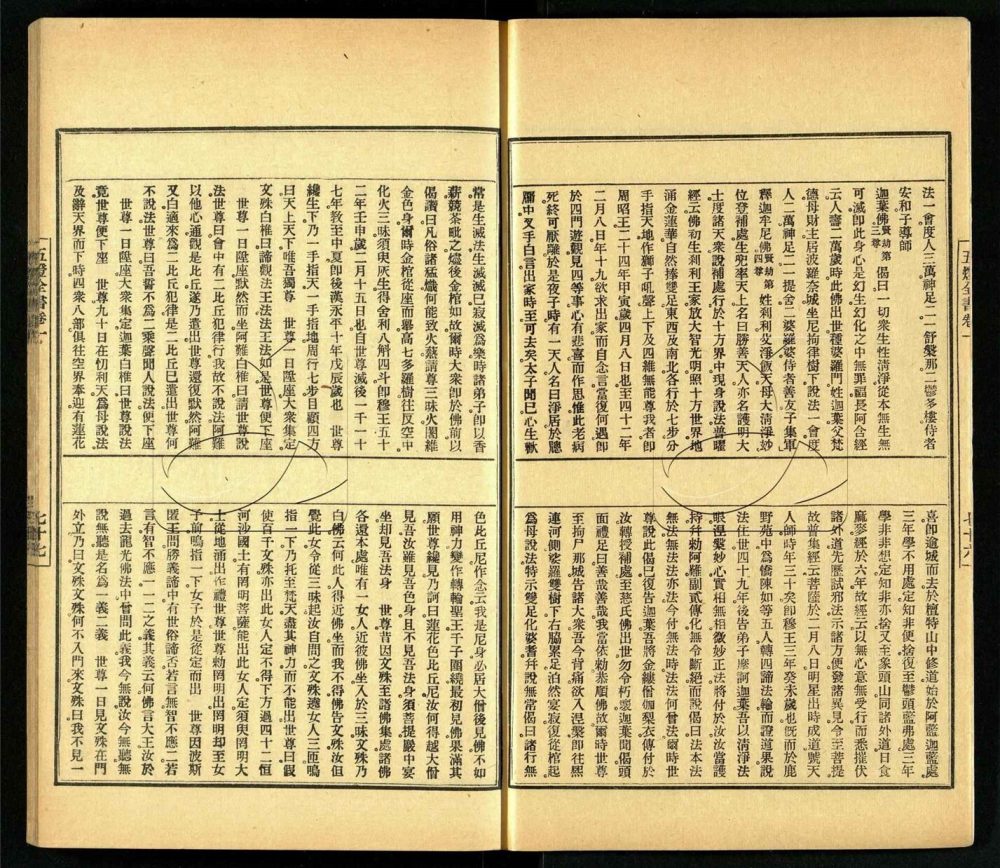 法一會度人三萬神足二一舒槃那二鬱多樓侍者
安和子導師
迦葉佛賢劫第三尊 偈曰一切衆生性清淨從本無生無
可滅即此身心是幻生幻化之中無罪福長阿含經
云人壽二萬歲時此佛出世種婆羅門姓迦葉父梵
德母財主居波羅奈城坐尼拘律樹下說法一會度
人二萬神足二一提舍二婆羅婆侍者善友子集軍
釋迦牟尼佛賢劫第四尊 姓剎利父淨飯天母大清淨妙
位登補處生兜率天上名曰勝善天人亦名護明大
士度諸天衆說補處行於十方界中現身說法普曜
經云佛初生剎利王家放大智光明照十方世界地
涌金蓮華自然捧雙足東西及南北各行於七步分
手指天地作獅子吼聲上下及四維無能尊我者即
周昭王二十四年甲寅歲四月八日也至四十二年
二月八日年十九欲求出家而自念言當復何遇即
於四門遊觀見四等事心有悲喜而作思惟此老病
死終可厭離於是夜子時有一天人名曰淨居於牕
牖中叉手白言出家時至可去矣太子聞已心生歡
喜即逾城而去於檀特山中修道始於阿藍迦藍處
三年學不用處定知非便捨復至鬱頭藍弗處三年
學非非想定知非亦捨又至象頭山同諸外道日食
麻麥經於六年故經云以無心意無受行而悉摧伏
諸外道先歷試邪法示諸方便發諸異見令至菩提
故普集經云菩薩於二月八日明星出時成道號天
人師時年三十矣即穆王三年癸未歲也既而於鹿
野苑中爲憍陳如等五人轉四諦法輪而證道果說
法住世四十九年後告弟子摩訶迦葉吾以清淨法
眼涅槃妙心實相無相微妙正法將付於汝汝當護
持并勅阿難副貳傳化無令斷絕而說偈曰法本法
無法無法法亦法今付無法時法法何曾法爾時世
尊說此偈已復告迦葉吾將金縷僧伽梨衣傳付於
汝轉授補處至慈氏佛出世勿令朽壞迦葉聞偈頭
面禮足曰善哉善哉我當依勅恭順佛故爾時世尊
至拘尸那城告諸大衆吾今背痛欲入涅槃即往熙
連河側娑羅雙樹下右脇累足泊然宴寂復從棺起
爲母說法特示雙足化婆耆并說無常偈曰諸行無
常是生滅法生滅滅已寂滅爲樂時諸弟子即以香
薪競茶毗之燼後金棺如故爾時大衆即於佛前以
偈讚曰凡俗諸猛熾何能致火爇請尊三昧火闍維
金色身爾時金棺從座而舉高七多羅樹往反空中
化火三昧須臾灰生得舍利八斛四斗即穆王五十
二年壬申歲二月十五日也自世尊滅後一千一十
七年教至中夏即後漢永平十年戊辰歲也 世尊
纔生下乃一手指天一手指地周行七步目顧四方
曰天上天下唯吾獨尊 世尊一日陞座大衆集定
文殊白椎曰諦觀法王法法王法如是世尊便下座
世尊一日陞座默然而坐阿難白椎曰請世尊說
法世尊曰會中有二比丘犯律行我故不說法阿難
以他心通觀是比丘遂乃遣出世尊還復默然阿難
又白適來爲二比丘犯律是二比丘已遣出世尊何
不說法世尊曰吾誓不爲二乘聲聞人說法便下座
世尊一日陞座大衆集定迦葉白椎曰世尊說法
竟世尊便下座 世尊九十日在忉利天爲母說法
及辭天界而下時四衆八部俱往空界奉迎有蓮花
色比丘尼作念云我是尼身必居大僧後見佛不如
用神力變作轉輪聖王千子圍繞最初見佛果滿其
願世尊纔見乃訶曰蓮花色比丘尼汝何得越大僧
見吾汝雖見吾色身且不見吾法身須菩提巖中宴
坐却見吾法身 世尊昔因文殊至諸佛集處諸佛
各還本處唯有一女人近彼佛坐入於三昧文殊乃
白佛云何此人得近佛坐而我不得佛告文殊汝但
覺此女令從三昧起汝自問之文殊遶女人三匝鳴
指一下乃托至梵天盡其神力而不能出世尊曰假
使百千文殊亦出此女人定不得下方過四十二恒
河沙國土有罔明菩薩能出此女人定須臾罔明大
士從地涌出作禮世尊世尊勅罔明出罔明却至女
子前鳴指一下女子於是從定而出 世尊因波斯
匿王問勝義諦中有世俗諦否若言無智不應二若
言有智不應一一二之義其義云何佛言大王汝於
過去龍光佛法中曾問此義我今無說汝今無聽無
說無聽是名爲一義二義 世尊一日見文殊在門
外立乃曰文殊文殊何不入門來文殊曰我不見一